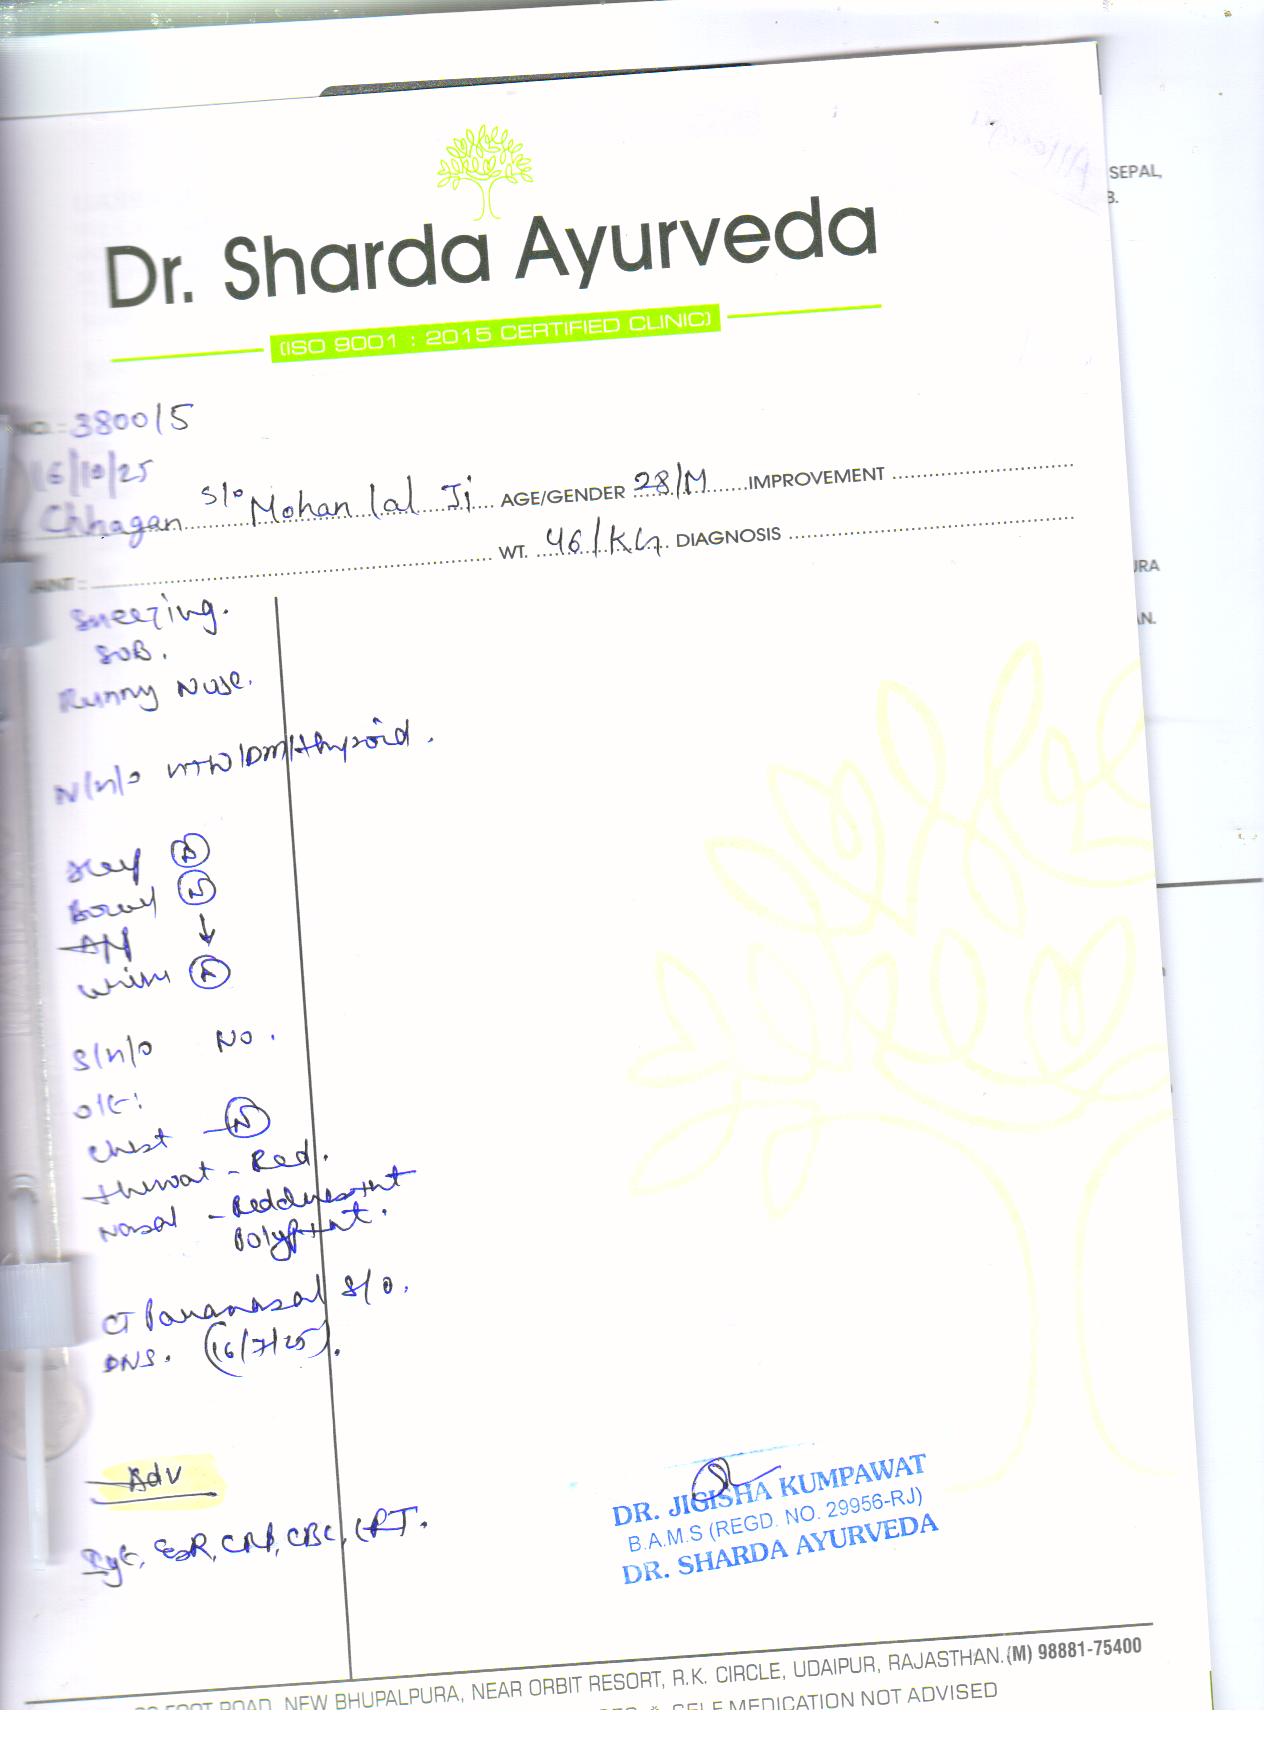 SEPAL,
B.
Dr. Sharda Ayurveda
(ISO 9001 : 2015 CERTIFIED CLINIC)
NO. : 3800/5
16/10/25
Chhagan S/o Mohan lal Ji AGE/GENDER 28/M IMPROVEMENT
WT. 46/KG DIAGNOSIS
URA
AN.
Sneezing.
SOB.
Runny Nose.
N/H/O HTN/DM/thyroid.
Bowel N
Urine
S/H/O No.
O/E:
Chest - N
throat - Red.
Nasal - Redness +nt
Polyp +nt.
CT Paranasal S/O.
DNS. (16/7/25).
Adv
IgE, ESR, CRP, CBC, LFT.
DR. JIGISHA KUMPAWAT
B.A.M.S (REGD. NO. 29956-RJ)
DR. SHARDA AYURVEDA
FOOT ROAD, NEW BHUPALPURA, NEAR ORBIT RESORT, R.K. CIRCLE, UDAIPUR, RAJASTHAN.(M) 98881-75400
& SELF MEDICATION NOT ADVISED